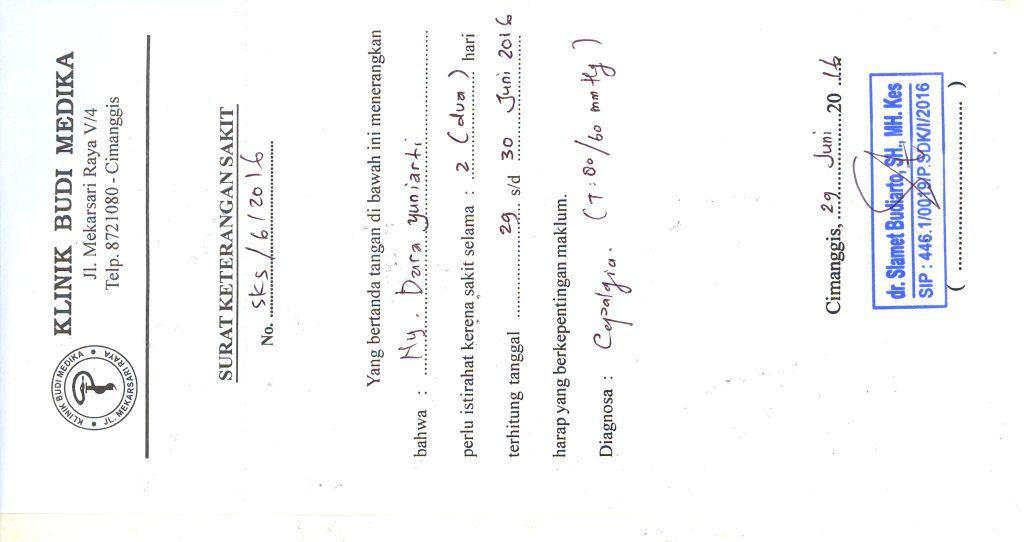 KLINIK BUDI MEDIKA
Jl. Mekarsari Raya V/4
Telp. 8721080 - Cimanggis
KLINIK BUDI MEDIKA
JL. MEKARSARI RAYA
SURAT KETERANGAN SAKIT
No. SKS/6/2016
Yang bertanda tangan di bawah ini menerangkan
bahwa : Ny. Dara Yuniarti
perlu istirahat kerena sakit selama : 2 (dua) hari
terhitung tanggal 29 s/d 30 Juni 2016
harap yang berkepentingan maklum.
Diagnosa : Cepalgia. (T: 80/60 mmHg)
Cimanggis, 29 Juni 20 16
dr. Slamet Budiarto, SH., MH. Kes
SIP : 446.1/0019/P.SDK/I/2016
(..............................)